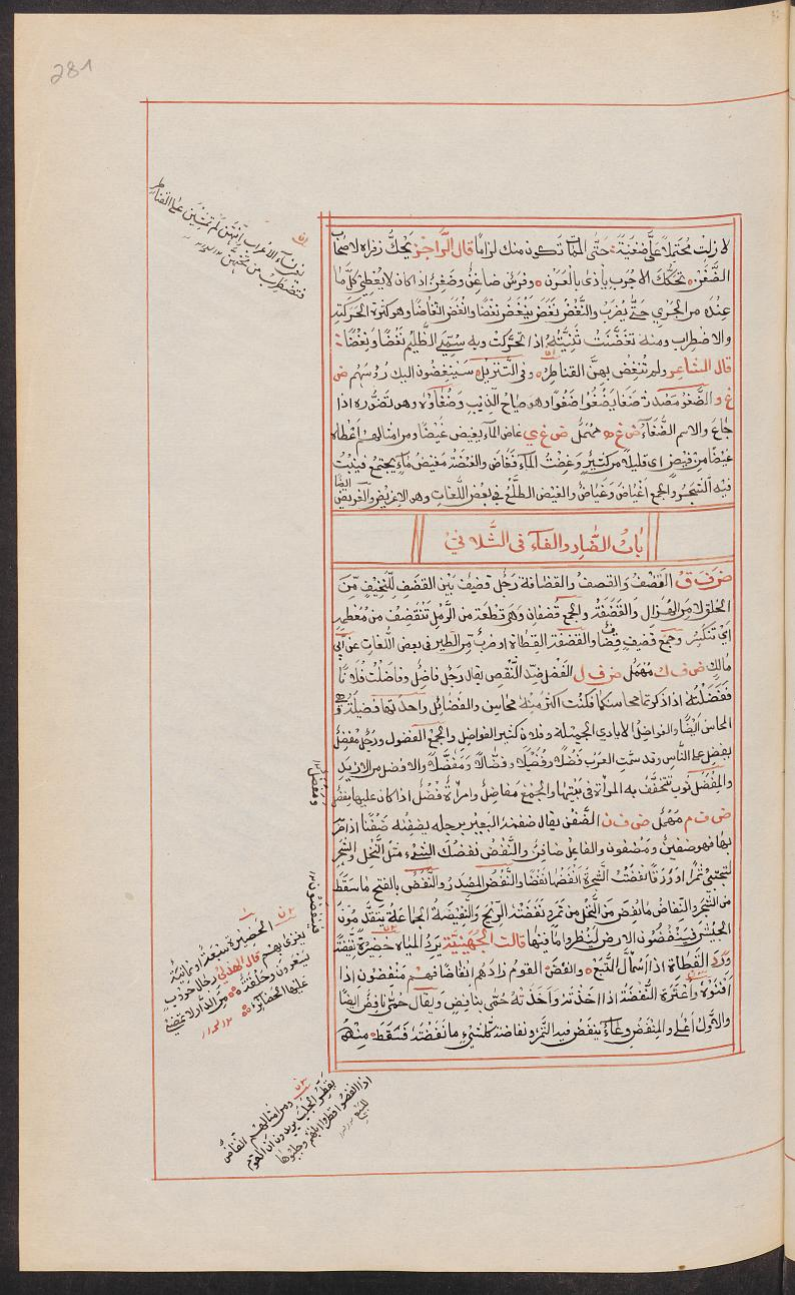 281
لا زلت محتملا علي ضغينة حتى الممات تكون منك لزاما قال الراجز يحك ذفراه لاصحاب
الضغن تحكك الاجرب يأذى بالعرن وفرس ضاغن وضغن اذا كان لا يعطي كل ما
عنده من الجري حتى يضرب والنغض نغض ينغض نغضا والنغض النغاضا وهو كثرة الحركة
والاضطراب ومنه تغضنت ثنيته اذا تحركت وبه سمي الظليم نغضا ونغضا
قال الشاعر ولم تنغض بهن القناطر وفي التنزيل سينغضون اليك رؤسهم ض
غ و الضغو مصدر ضغا يضغوا ضغوا وهو صياح الذيب وضغاؤه وهو تضوره اذا
جاع والاسم الضغاء ض غ ه مهمل ض غ ي غاض الماء يغيض غيضا ومن امثالهم اعطاه
غيضا من فيض اى قليلا من كثير وغضت الماء فغاض والغيضة مغيض ماء يجتمع فينبت
فيه الشجر والجمع اغياض وغياض والغيض الطلع في بعض اللغات وهو الاغريض والغريض ايضا
باب الضاد والفاء فى الثلاثي
ض ف ق القضف والقصف والقضافة رجل قضيف بين القضف للنحيف من
الخلق لا من الهزال والقضفة والجمع قضفان وهي قطعة من الرمل تنقضف من معظمه
اي تنكسر وجمع قضيف قضفا والقضفة القطاة او ضرب من الطير فى بعض اللغات عن ابي
مالك ض ف ك مهمل ض ف ل الفضل ضد النقص يقال رجل فاضل وفاضلت فلانا
ففضلته اذا ذكرتما محاسنكما فكنت اكثر منه محاسن والفضائل واحدتها فضيلة وهي
المحاسن ايضا والفواضل الايادي الجميلة وفلان كثير الفواضل والجمع الفضول ورجل مفضل
يفضل على الناس وقد سمت العرب فضلا وفضيلا وفضالا ومفضلا والافضل من الازيد
والمفضل ثوب تتخفف به المرأة فى بيتها والجمع مفاضل وامراة فضل اذا كان عليها مفضل
ض ف م مهمل ض ف ن الضفن يقال ضفنه البعير برجله يضفنه ضفنا اذا ضربه
بها فهو ضفين ومضفون والفاعل ضافن والنفض نفضك الشيء مثل النخل والشجر
لتجتنى ثمرا او ورقا نفضت الشجرة انفضها نفضا والنفض المصدر والنفض بالفتح ما سقط
من الشجر والنفاض ما نفض من النخل من ثمره ونفضته الريح والنفيضة الجماعة يتقدمون
الجيش فينفضون الارض لينظروا ما فيها قالت الجهنية يرد المياه حضيرة ونفيضة
ورد القطاة اذا اسمأل التبع وانفض القوم زادهم انفاضا فهم منفضون اذا
افنوه واعترته النفضة اذا اخذته واخذته حمى بنافض ويقال حمى نافض ايضا
والاول اعلى والمنفض وعاء ينفض فيه التمر ونفاضة كل شيء ما نفضته فسقط منه
ومفضل
فينفضون
الحضيرة سبعة او ثمانية
يغزى بهم قال الهذلي رجال حروب
يسعرون وحلقة من الدار لا تمضي
عليها الحضائر
ومن امثالهم النفاض
يقطر الجلب يريدون ان القوم
اذا انفضوا قطروا ابلهم وجلبوها
للبيع